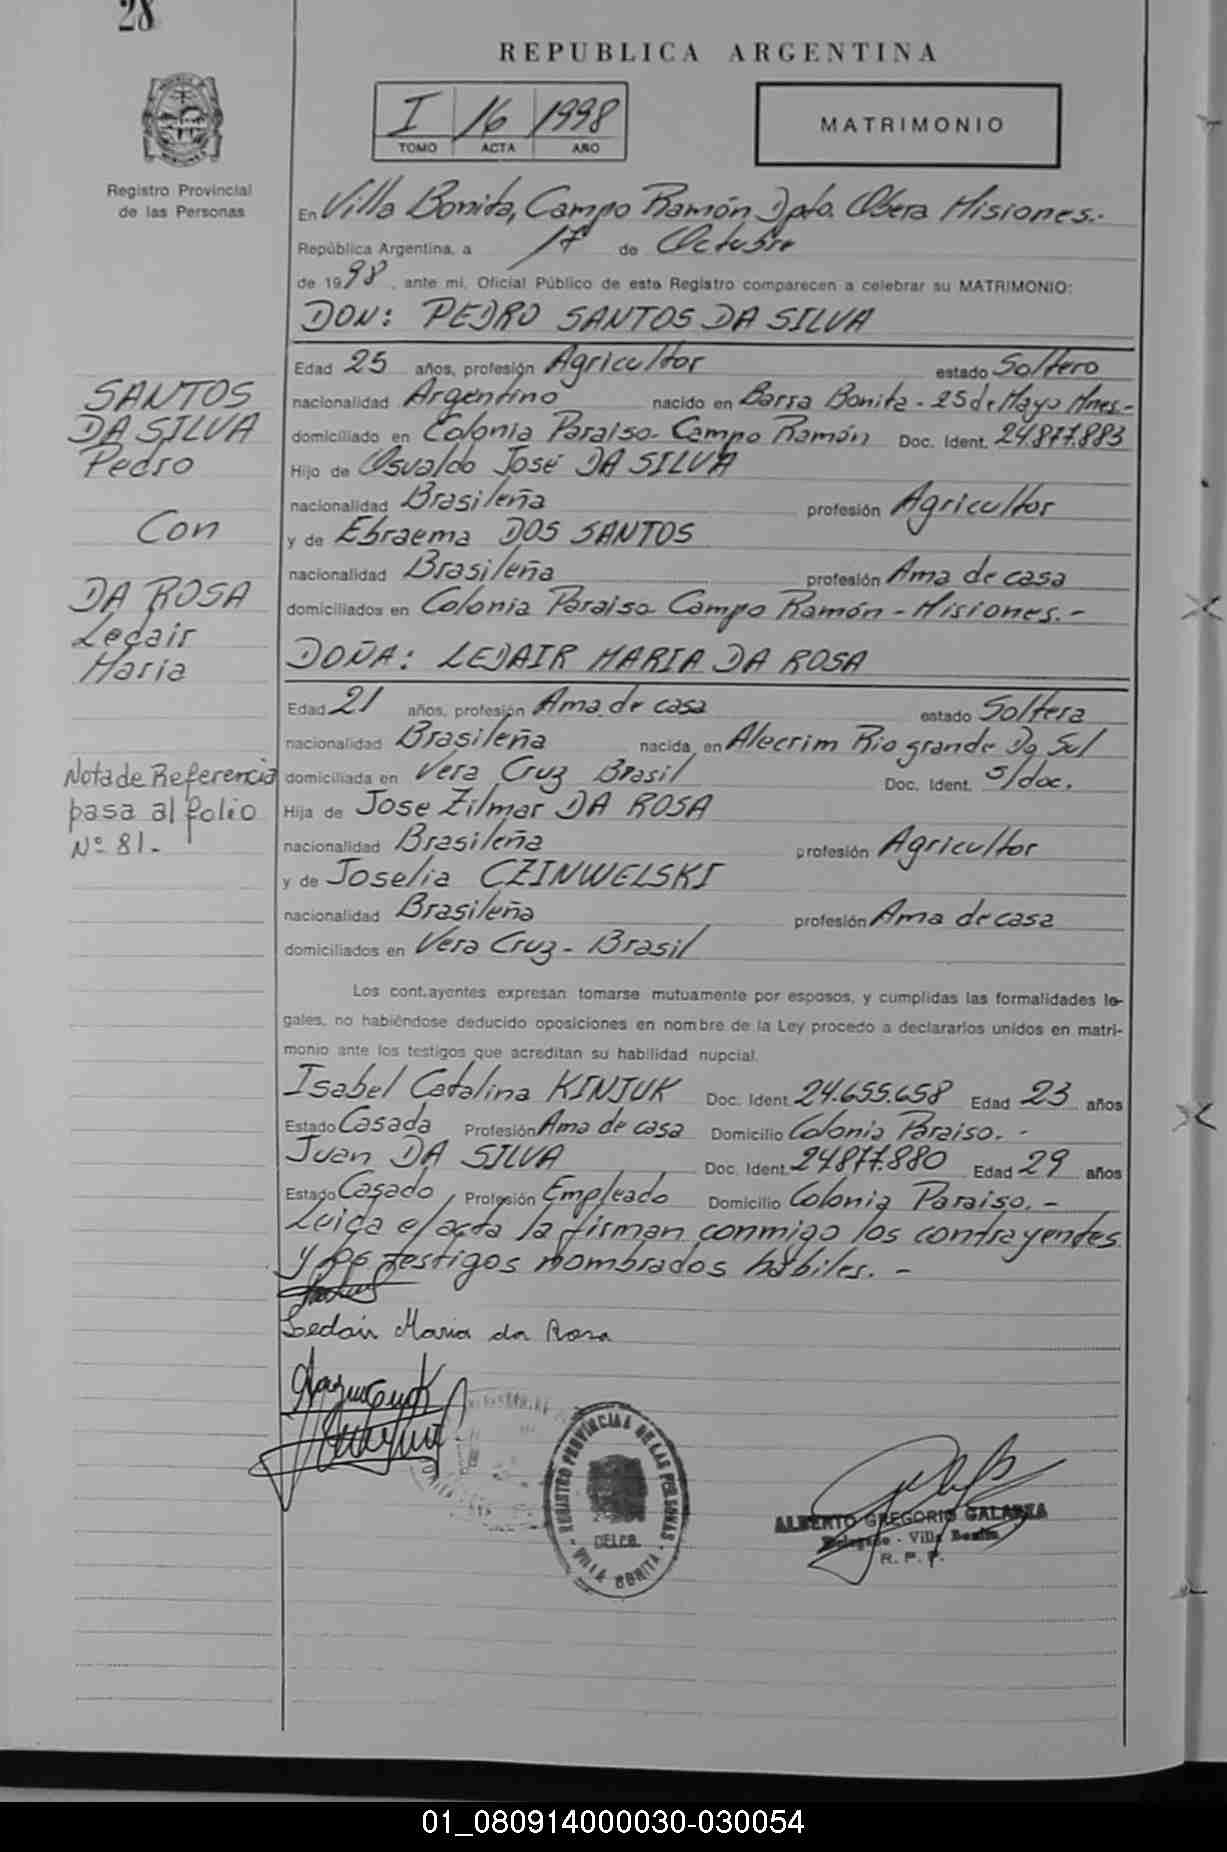 28
REPUBLICA ARGENTINA
I 16 1998
TOMO ACTA AÑO
MATRIMONIO
Registro Provincial
de las Personas
En Villa Bonita, Campo Ramón Dpto. Obera Misiones.-
República Argentina, a 17 de Octubre
de 1998, ante mi, Oficial Público de este Registro comparecen a celebrar su MATRIMONIO:
DON: PEDRO SANTOS DA SILVA
Edad 25 años, profesión Agricultor estado Soltero
nacionalidad Argentino nacido en Barra Bonita - 25 de Mayo Mnes.-
domiciliado en Colonia Paraiso - Campo Ramón Doc. Ident. 24.877.883
Hijo de Osvaldo José DA SILVA
nacionalidad Brasileña profesión Agricultor
y de Ebraema DOS SANTOS
nacionalidad Brasileña profesión Ama de casa
domiciliados en Colonia Paraiso Campo Ramón - Misiones.-
DOÑA: LEDAIR MARIA DA ROSA
Edad 21 años, profesión Ama de casa estado Soltera
nacionalidad Brasileña nacida en Alecrim Rio grande Do Sul
domiciliada en Vera Cruz Brasil Doc. Ident. s/doc.
Hija de Jose Zilmar DA ROSA
nacionalidad Brasileña profesión Agricultor
y de Joselia CZINWELSKI
nacionalidad Brasileña profesión Ama de casa
domiciliados en Vera Cruz - Brasil
Los cont.ayentes expresan tomarse mutuamente por esposos, y cumplidas las formalidades le-
gales, no habiéndose deducido oposiciones en nombre de la Ley procedo a declararlos unidos en matri-
monio ante los testigos que acreditan su habilidad nupcial.
Isabel Catalina KINJUK Doc. Ident. 24.655.658 Edad 23 años
Estado Casada Profesión Ama de casa Domicilio Colonia Paraiso. -
Juan DA SILVA Doc. Ident. 24877.880 Edad 29 años
Estado Casado, Profesión Empleado Domicilio Colonia Paraiso. -
Leida el acta la firman conmigo los contrayentes
y los testigos nombrados hábiles. -
Ledair Maria da Rosa
SANTOS
DA SILVA
Pedro
Con
DA ROSA
Ledair
Maria
Nota de Referencia
pasa al folio
Nº 81.-
REGISTRO PROVINCIAL DE LAS PERSONAS
DELEG.
- VILLA BONITA -
ALBERTO GREGORIO GALARZA
Delegado - Villa Bonita
R. P. P.
01_080914000030-030054